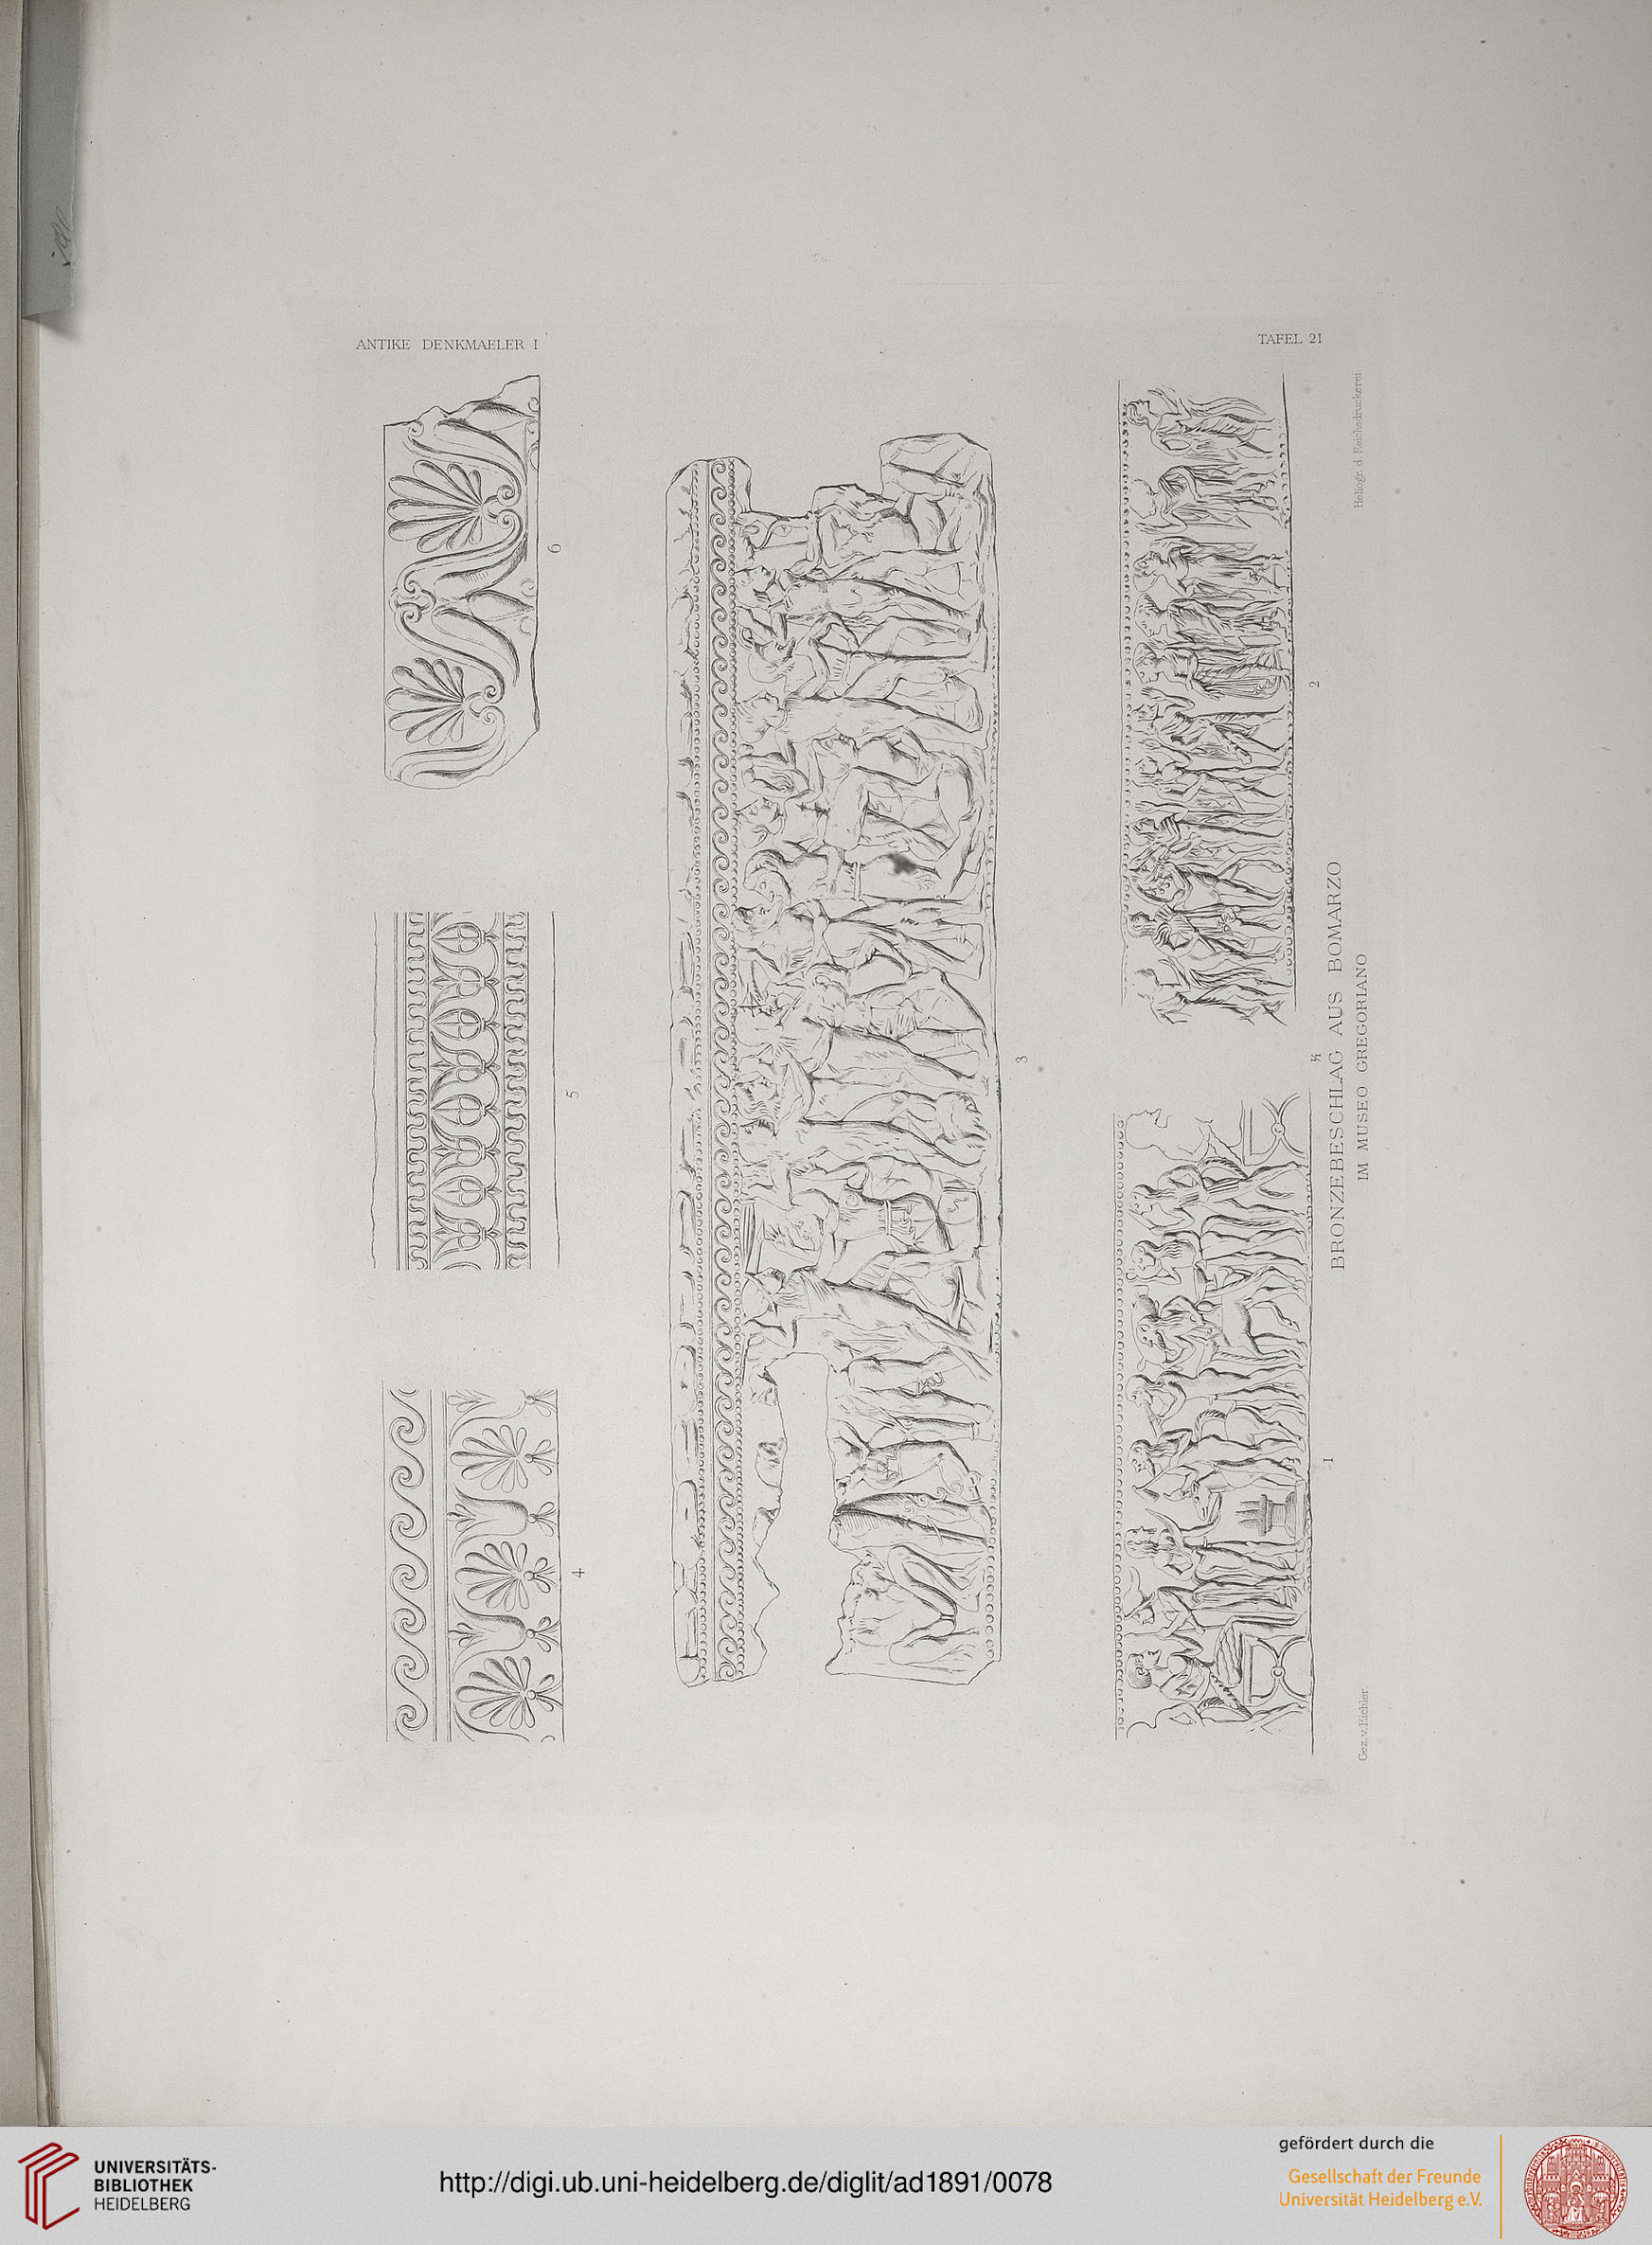 ANTIKE DENKMAELER I
TAFEL 21
6
5
4
3
2
1
½
BRONZEBESCHLAG AUS BOMARZO
IM MUSEO GREGORIANO
Gez. v. Eichler.
Heliogr. d. Reichsdruckerei.
UNIVERSITÄTS-
BIBLIOTHEK
HEIDELBERG
http://digi.ub.uni-heidelberg.de/diglit/ad1891/0078
gefördert durch die
Gesellschaft der Freunde
Universität Heidelberg e.V.